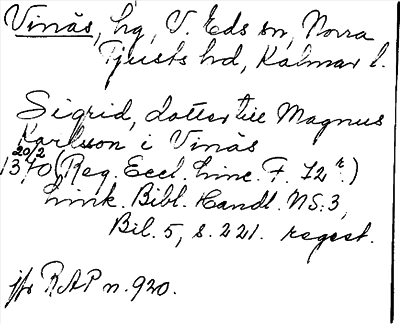 Vinäs, hg, V. Eds sn, Norra
Tjusts hd, Kalmar l.
Sigrid, dotter till Magnus
Karlsson i Vinäs
20/2
1370 (Reg. Eccl. Linc. F. 72r.)
Link. Bibl. Handl. NS:3,
Bil. 5, s. 221. regest.
jfr RAP n. 920.